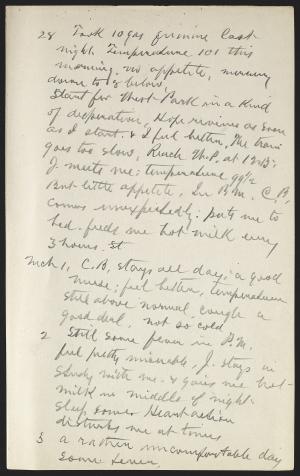 28 Took 10 gas quinine last
night. Temperature 101 this
morning. no appetite, mercury
down to 8 below,
Start for West Park in a kind
of desperation, Hope revives as soon
as I start. & I feel better, The train
goes too slow, Reach W.P. at 12.15:
J meets me; temperature 99 1/2
But little appetite, In P.M. C.B,
comes unexpectedly: puts me to
bed. feeds me hot milk every
3 hours.
Mch 1, C.B, stays all day, a good
nurse; feel better, temperature
still above normal, cough a
good deal, not so cold
2 Still some fever in P.M.
feel pretty miserable, J. stays in
study with me. & gives me hot
milk in middle of night.
Sleep some Heart action
disturbs me at times
3 a rather uncomfortable day
some fever,